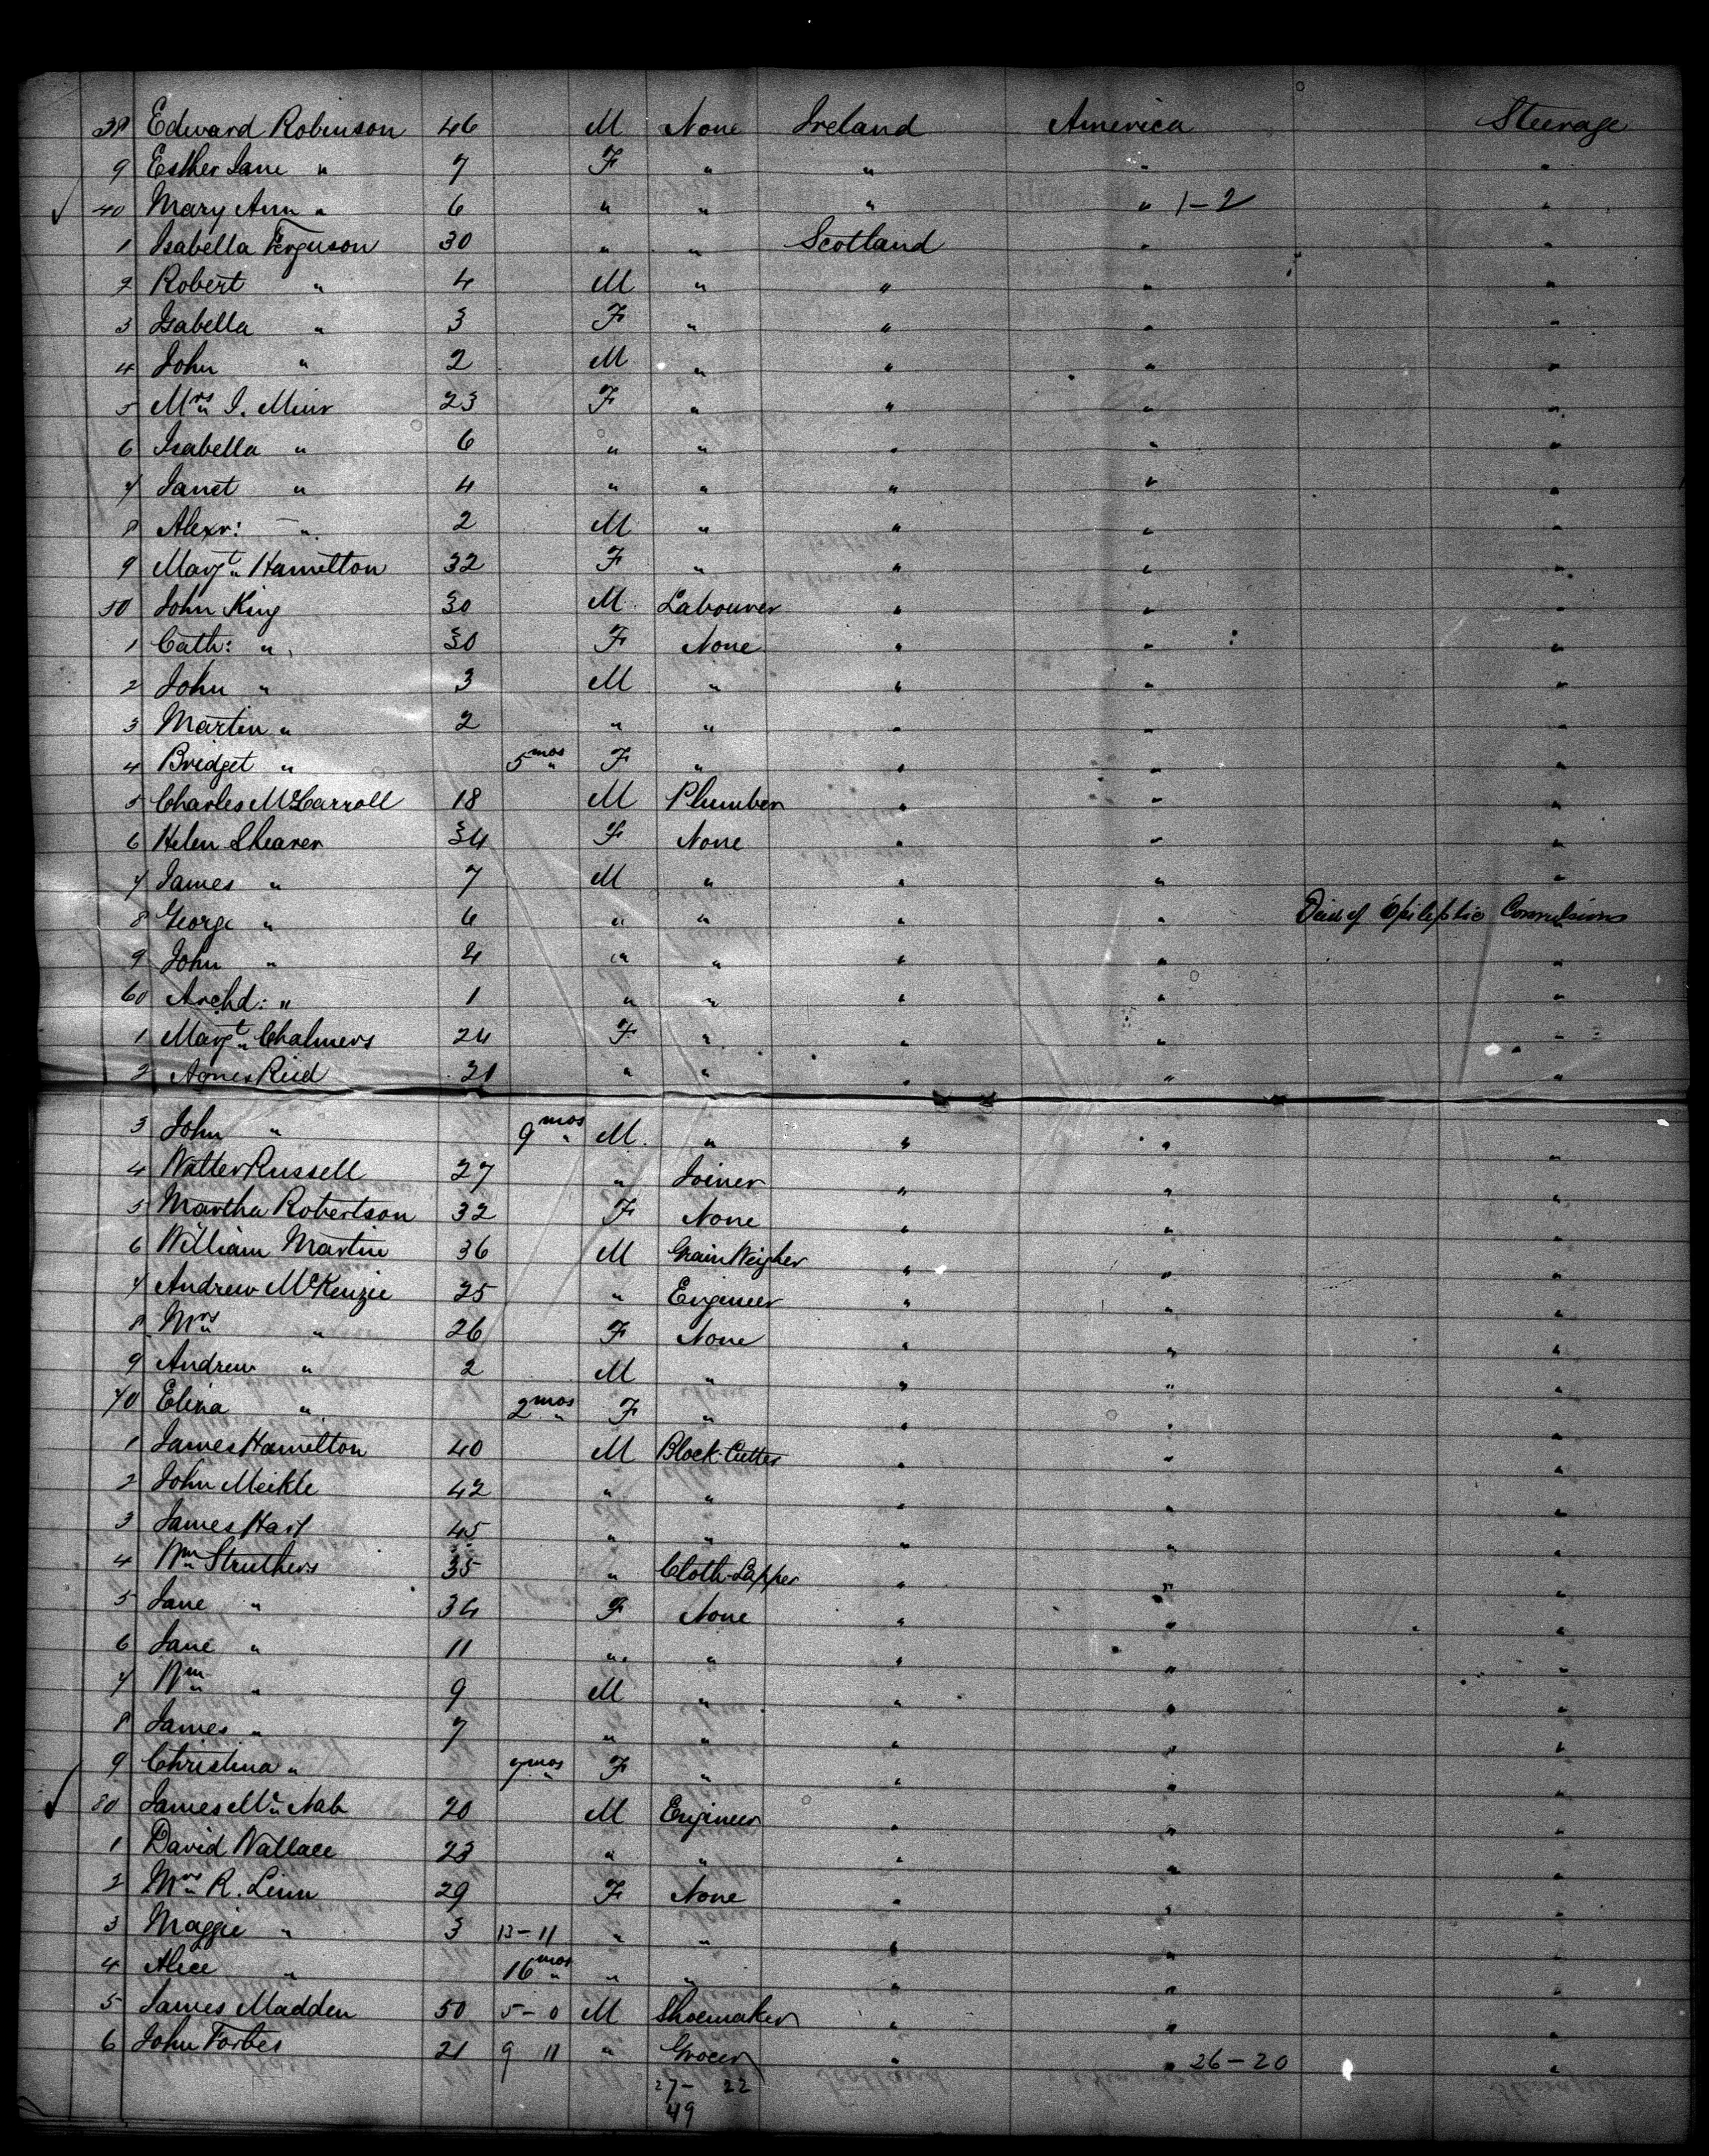 38 Edward Robinson 46 M None Ireland America Steerage
9 Esther Jane " 7 F " " " "
40 Mary Ann " 6 " " " " 1-2 "
1 Isabella Ferguson 30 " " Scotland " "
2 Robert " 4 M " " " "
3 Isabella " 3 F " " " "
4 John " 2 M " " " "
5 Mrs J. Muir 23 F " " " "
6 Isabella " 6 " " " " "
7 Janet " 4 " " " " "
8 Alexr: " 2 M " " " "
9 Margt Hamilton 32 F " " " "
50 John King 30 M Labourer " " "
1 Cath: " 30 F None " " "
2 John " 3 M " " " "
3 Martin " 2 " " " " "
4 Bridget " 5 mos F " " " "
5 Charles McCarroll 18 M Plumber " " "
6 Helen Shearer 34 F None " " "
7 James " 7 M " " " "
8 George " 6 " " " " Died of Epileptic Convulsions "
9 John " 4 " " " " "
60 Archd: " 1 " " " " "
1 Margt Chalmers 24 F " " " "
2 Agnes Reid 21 " " " " "
3 John " 9 mos M " " " "
4 Walter Russell 27 " Joiner " " "
5 Martha Robertson 32 F None " " "
6 William Martin 36 M Grain Weigher " " "
7 Andrew McKenzie 25 " Engineer " " "
8 Mrs " 26 F None " " "
9 Andrew " 2 M " " " "
70 Eliza " 2 mos F " " " "
1 James Hamilton 40 M Block-Cutter " " "
2 John Meikle 42 " " " " "
3 James Hart 45 " " " " "
4 Wm Struthers 35 " Cloth-Lapper " " "
5 Jane " 34 F None " " "
6 Jane " 11 " " " " "
7 Wm " 9 M " " " "
8 James " 7 " " " " "
9 Christina " 7 mos F " " " "
80 James McNab 20 M Engineer " " "
1 David Wallace 23 " " " " "
2 Mrs R. Linn 29 F None " " "
3 Maggie " 3 13-11 " " " " "
4 Alice " 16 mos " " " " "
5 James Madden 50 5-0 M Shoemaker " " "
6 John Forbes 21 9 11 " Grocer " " 26-20 "
27- 22
49